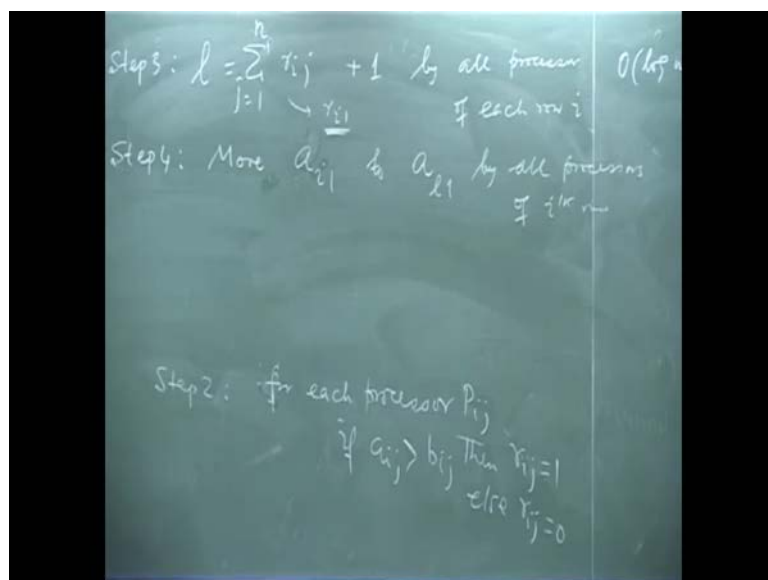 Step3: l = n∑j=1 rij + 1 by all processor O(log n
↘ ri1 of each row i
Step4: Move ai1 to al1 by all processors
of ith row
Step2: for each processor Pij
if aij > bij Then rij=1
else rij=0